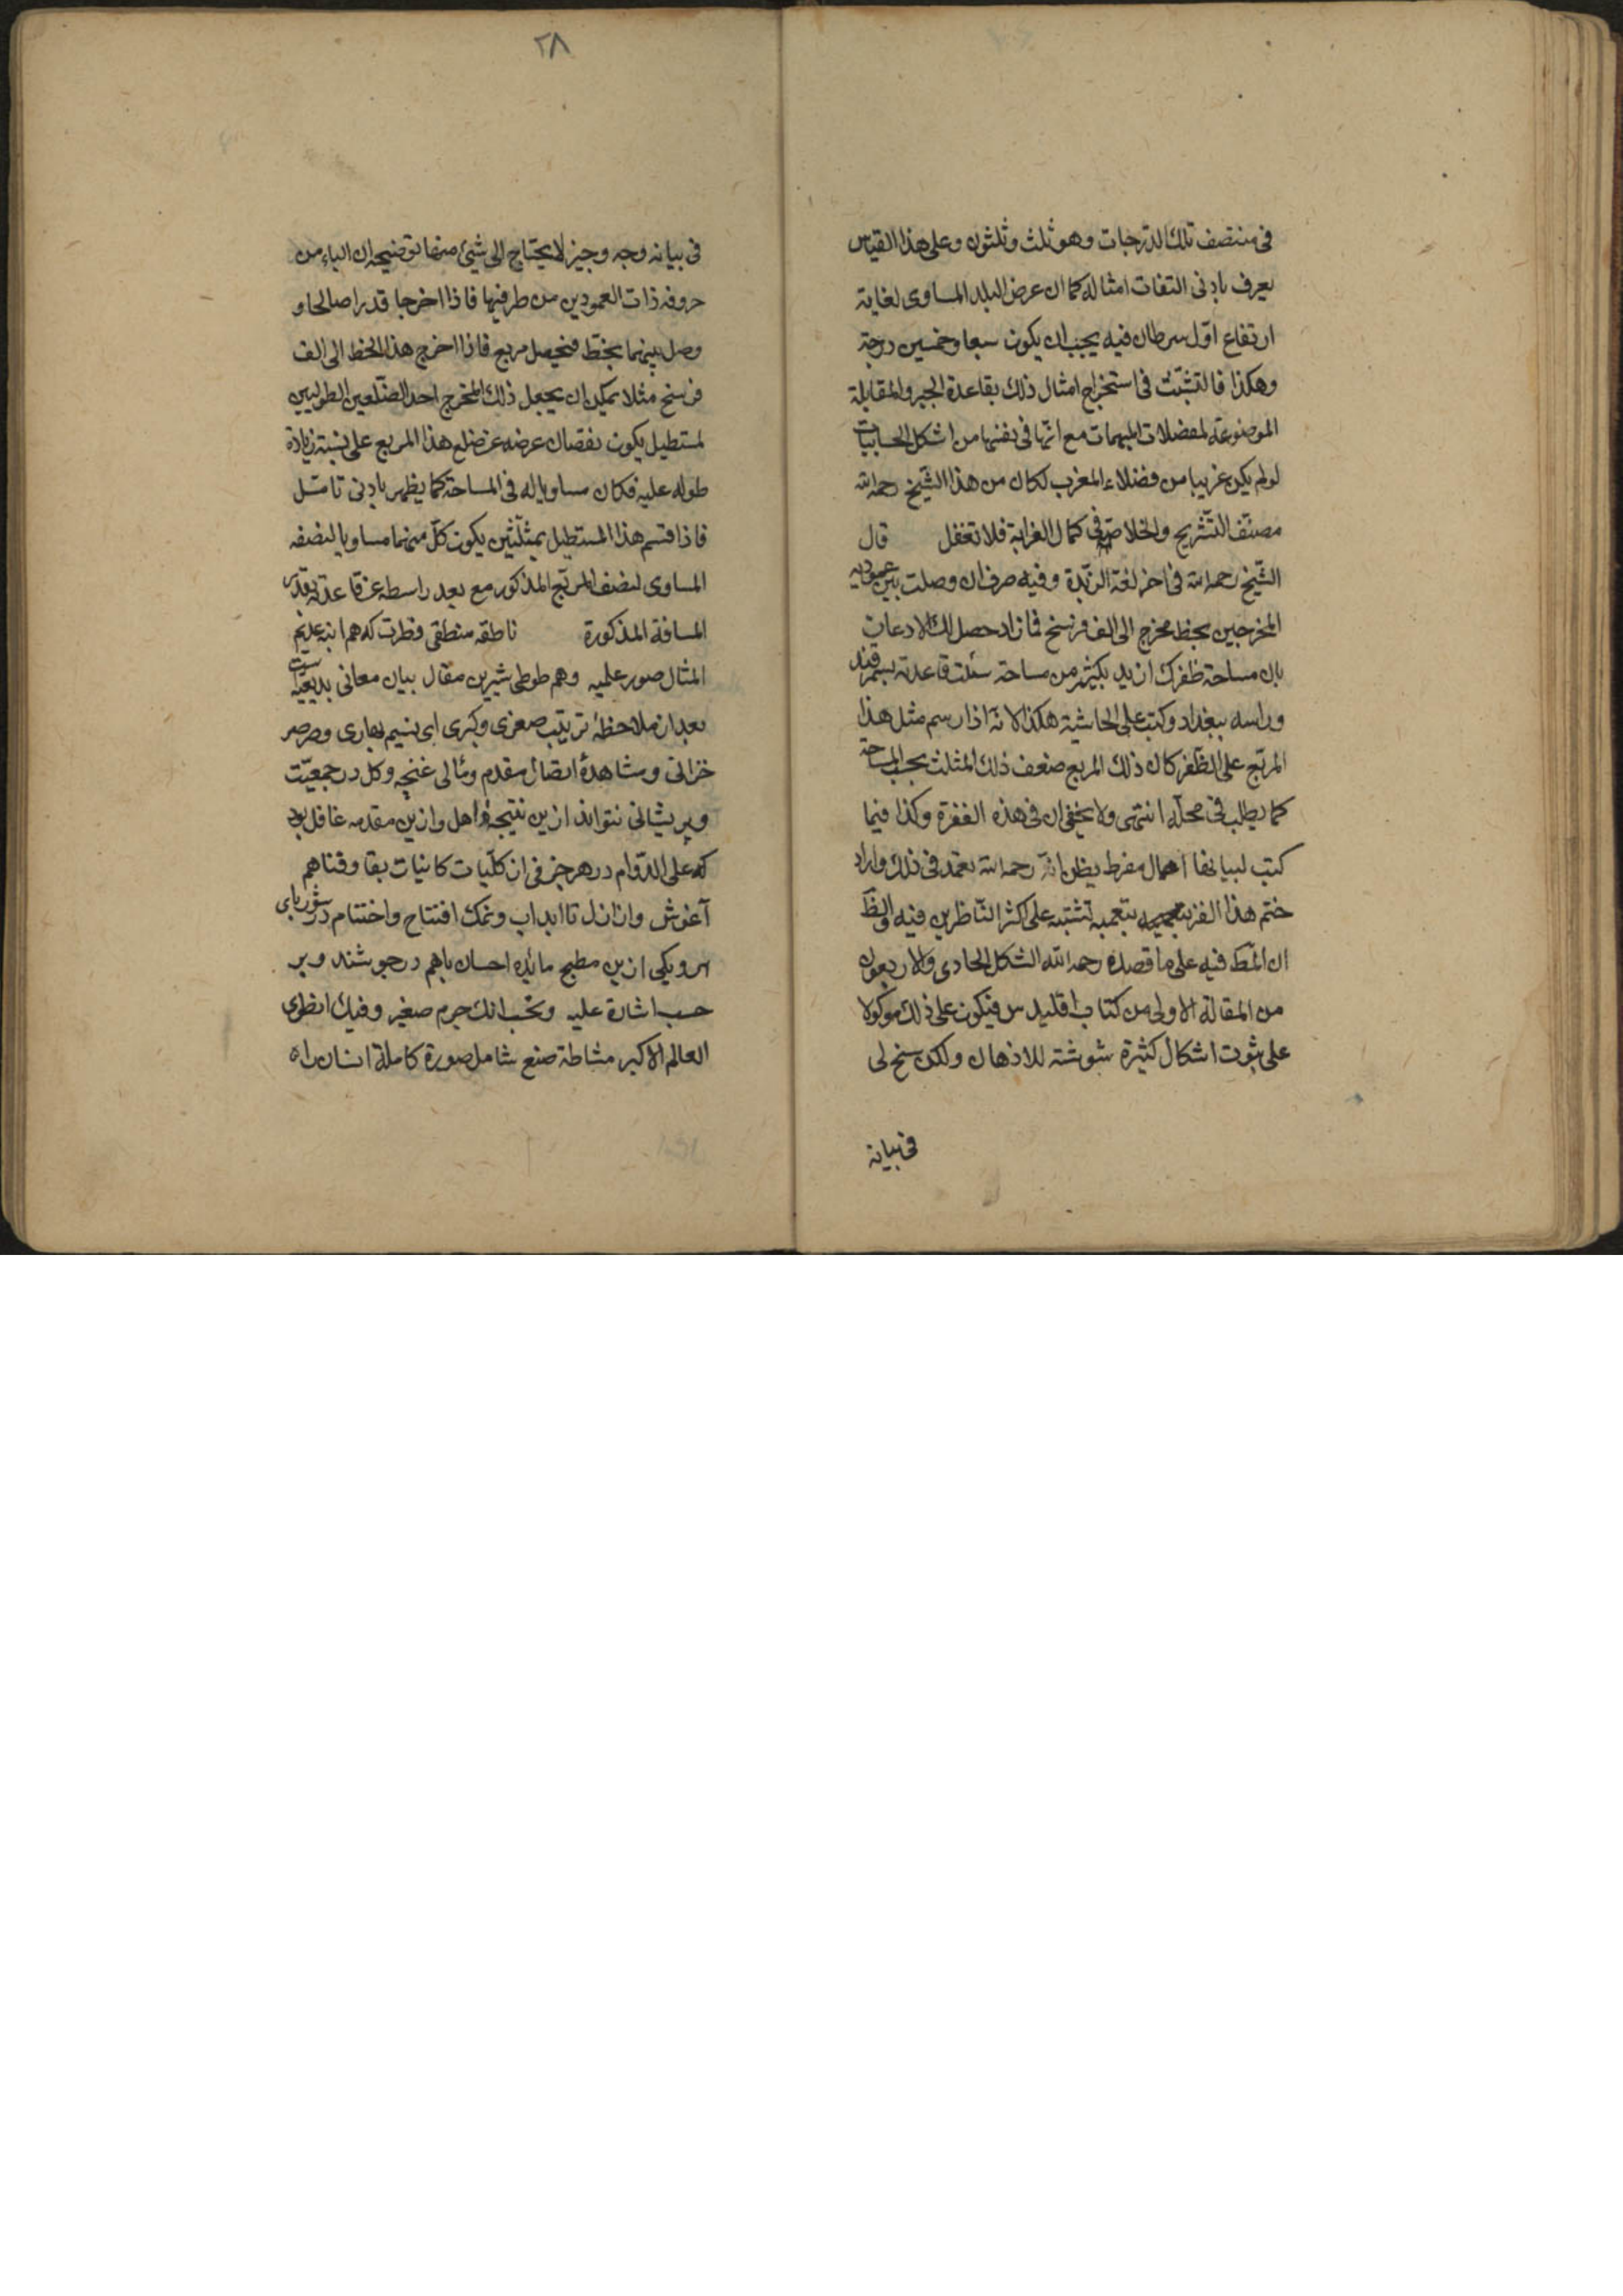 فی منتصف تلك الدرجات وهو ثلث وثلثون وعلی هذا القیاس
یعرف بادنی التفات امثاله کما ان عرض البلد المساوی لغایة
ارتفاع اوّل سرطان فیه یجب ان یکون سبعا وخمسین درجة
وهکذا فالتشبّث فی استخراج امثال ذلك بقاعدة الجبر والمقابلة
الموضوعة لمعضلات المبهمات مع انّها فی نفسها من اشکل الحسابیات
لو لم یکن غریبا من فضلاء المغرب لکان من هذا الشیخ رحمه الله
مصنّف التشریح والخلاصة فی کمال الغرابة فلا تغفل قال
الشیخ رحمه الله فی اخر لغة الزبدة وفیه صرف ان وصلت بین عمودیه
المخرجین بخط مخرج الی الف فرسخ فما زاد حصل لك الاذعان
بان مساحة ظفرك ازید بکثیر من مساحة مثلث قاعدته بسمرقند
وراسه ببغداد وکتب علی الحاشیة هکذا لانه اذا رسم مثل هذا
المربّع علی الظفر کان ذلك المربع ضعف ذلك المثلث بحسب المساحة
کما یطلب فی محلّه انتهی ولا یخفی ان فی هذه الفقرة وکذا فیما
کتب لبیانها اهمال مفرط یظن انّه رحمه الله تعمد فی ذلك واراد
ختم هذا الفن بتعمیه تشتبه علی اکثر الناظرین فیه والظّ
ان المط فیه علی ما قصده رحمه الله الشکل الحادی والاربعون
من المقالة الاولی من کتاب اقلیدس فیکون علی ذلك موکولا
علی ثبوت اشکال کثیرة مشوشة للاذهان ولکن سنح لی
فی بیانه
٢٨
فی بیانه وجه وجیز لا یحتاج الی شیئ منها توضیحه ان الباء من
حروفه ذات العمودین من طرفیها فاذا اخرجا قدرا صالحا و
وصل بینهما بخط فیحصل مربع فاذا اخرج هذا الخط الی الف
فرسخ مثلا یمکن ان یجعل ذلك المخرج احد الضلعین الطولیین
لمستطیل یکون نقصان عرضه عن ضلع هذا المربع علی نسبة زیادة
طوله علیه فکان مساویا له فی المساحة کما یظهر بادنی تامّل
فاذا قسم هذا المستطیل بمثلثین یکون کلّ منهما مساویا لنصفه
المساوی لنصف المربّع المذکور مع بعد راسه عن قاعدته بقدر
المسافة المذکورة ناطقه منطقی فطرت که هم اینه عدیم
المثال صور علمیه وهم طوطی شیرین مقال بیان معانی بدیعیّه است
بعد از ملاحظهٔ ترتیب صغری وکبری ای نسیم بهاری وصرصر
خزانی ومشاهدهٔ اتصال مقدم وتالی غنچه وکل در جمعیّت
وپریشانی نتواند ازین نتیجه ذاهل وازین مقدمه غافل بود
که علی الدّوام در هر جزئی از کلّیات کاینات بقا وفنا هم
آغوش واز ازل تا ابد اب ونمك افتتاح واختتام در شوربای
هر دیکی ازین مطبخ مایدهٔ احسان باهم در جوشند وبر
حسب اشاره علیه وتحسب انك جرم صغیر وفیك انطوی
العالم الاکبر مشاطه صنع شامل صورة کاملهٔ انسان را